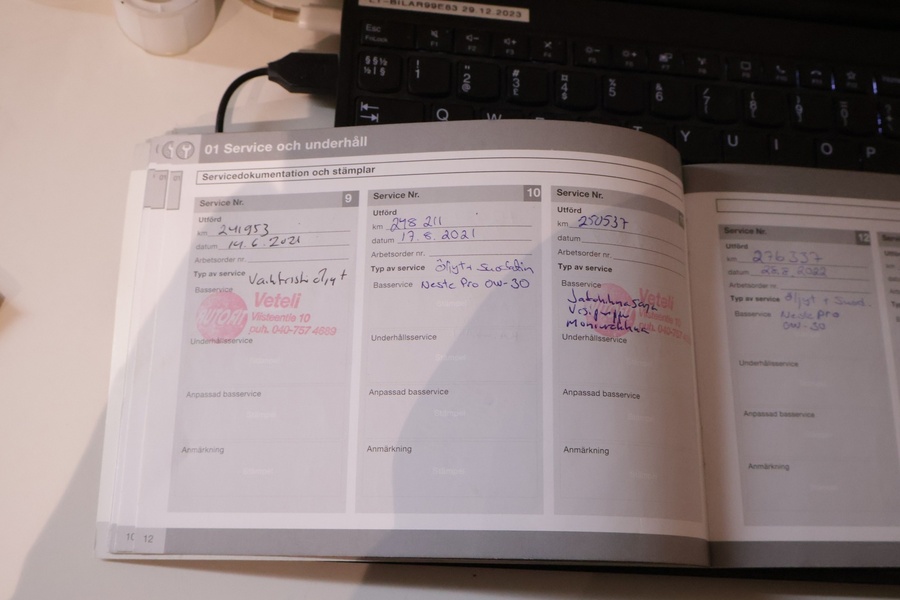 LT-BILAR99E83 29.12.2023
Esc
FnLock
Q
W
T
Y
U
I
O
P
01 Service och underhåll
Servicedokumentation och stämplar
Service Nr. 9
Utförd
km 241953
datum 14.6.2021
Arbetsorder nr.
Typ av service
Basservice
Veteli
AUTOAT
Wisteentie 10
puh. 040-757 4589
Underhållsservice
Anpassad basservice
Anmärkning
Service Nr. 10
Utförd
km 248 211
datum 17.8.2021
Arbetsorder nr.
Typ av service Öljyt + Suodatin
Basservice Neste Pro 0W-30
Underhållsservice
Anpassad basservice
Anmärkning
Service Nr.
Utförd
km 250537
datum
Arbetsorder nr.
Typ av service
Basservice
Veteli
Underhållsservice
Anpassad basservice
Anmärkning
Service Nr. 12
Utförd
km 276337
datum 28.7.2022
Arbetsorder nr.
Typ av service Öljyt + Suod.
Basservice Neste Pro
0W-30
Underhållsservice
Anpassad basservice
Anmärkning
10 12